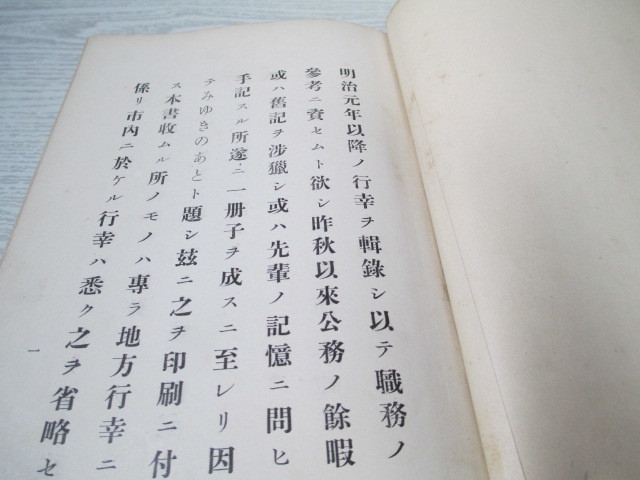 明治元年以降ノ行幸ヲ輯錄シ以テ職務ノ
參考ニ資セムト欲シ昨秋以來公務ノ餘暇
或ハ舊記ヲ涉獵シ或ハ先輩ノ記憶ニ問ヒ
手記スル所遂ニ一册子ヲ成スニ至レリ因
テみゆきのあとト題シ玆ニ之ヲ印刷ニ付
ス本書收ムル所ノモノハ專ラ地方行幸ニ
係リ市內ニ於ケル行幸ハ悉ク之ヲ省略セ
一